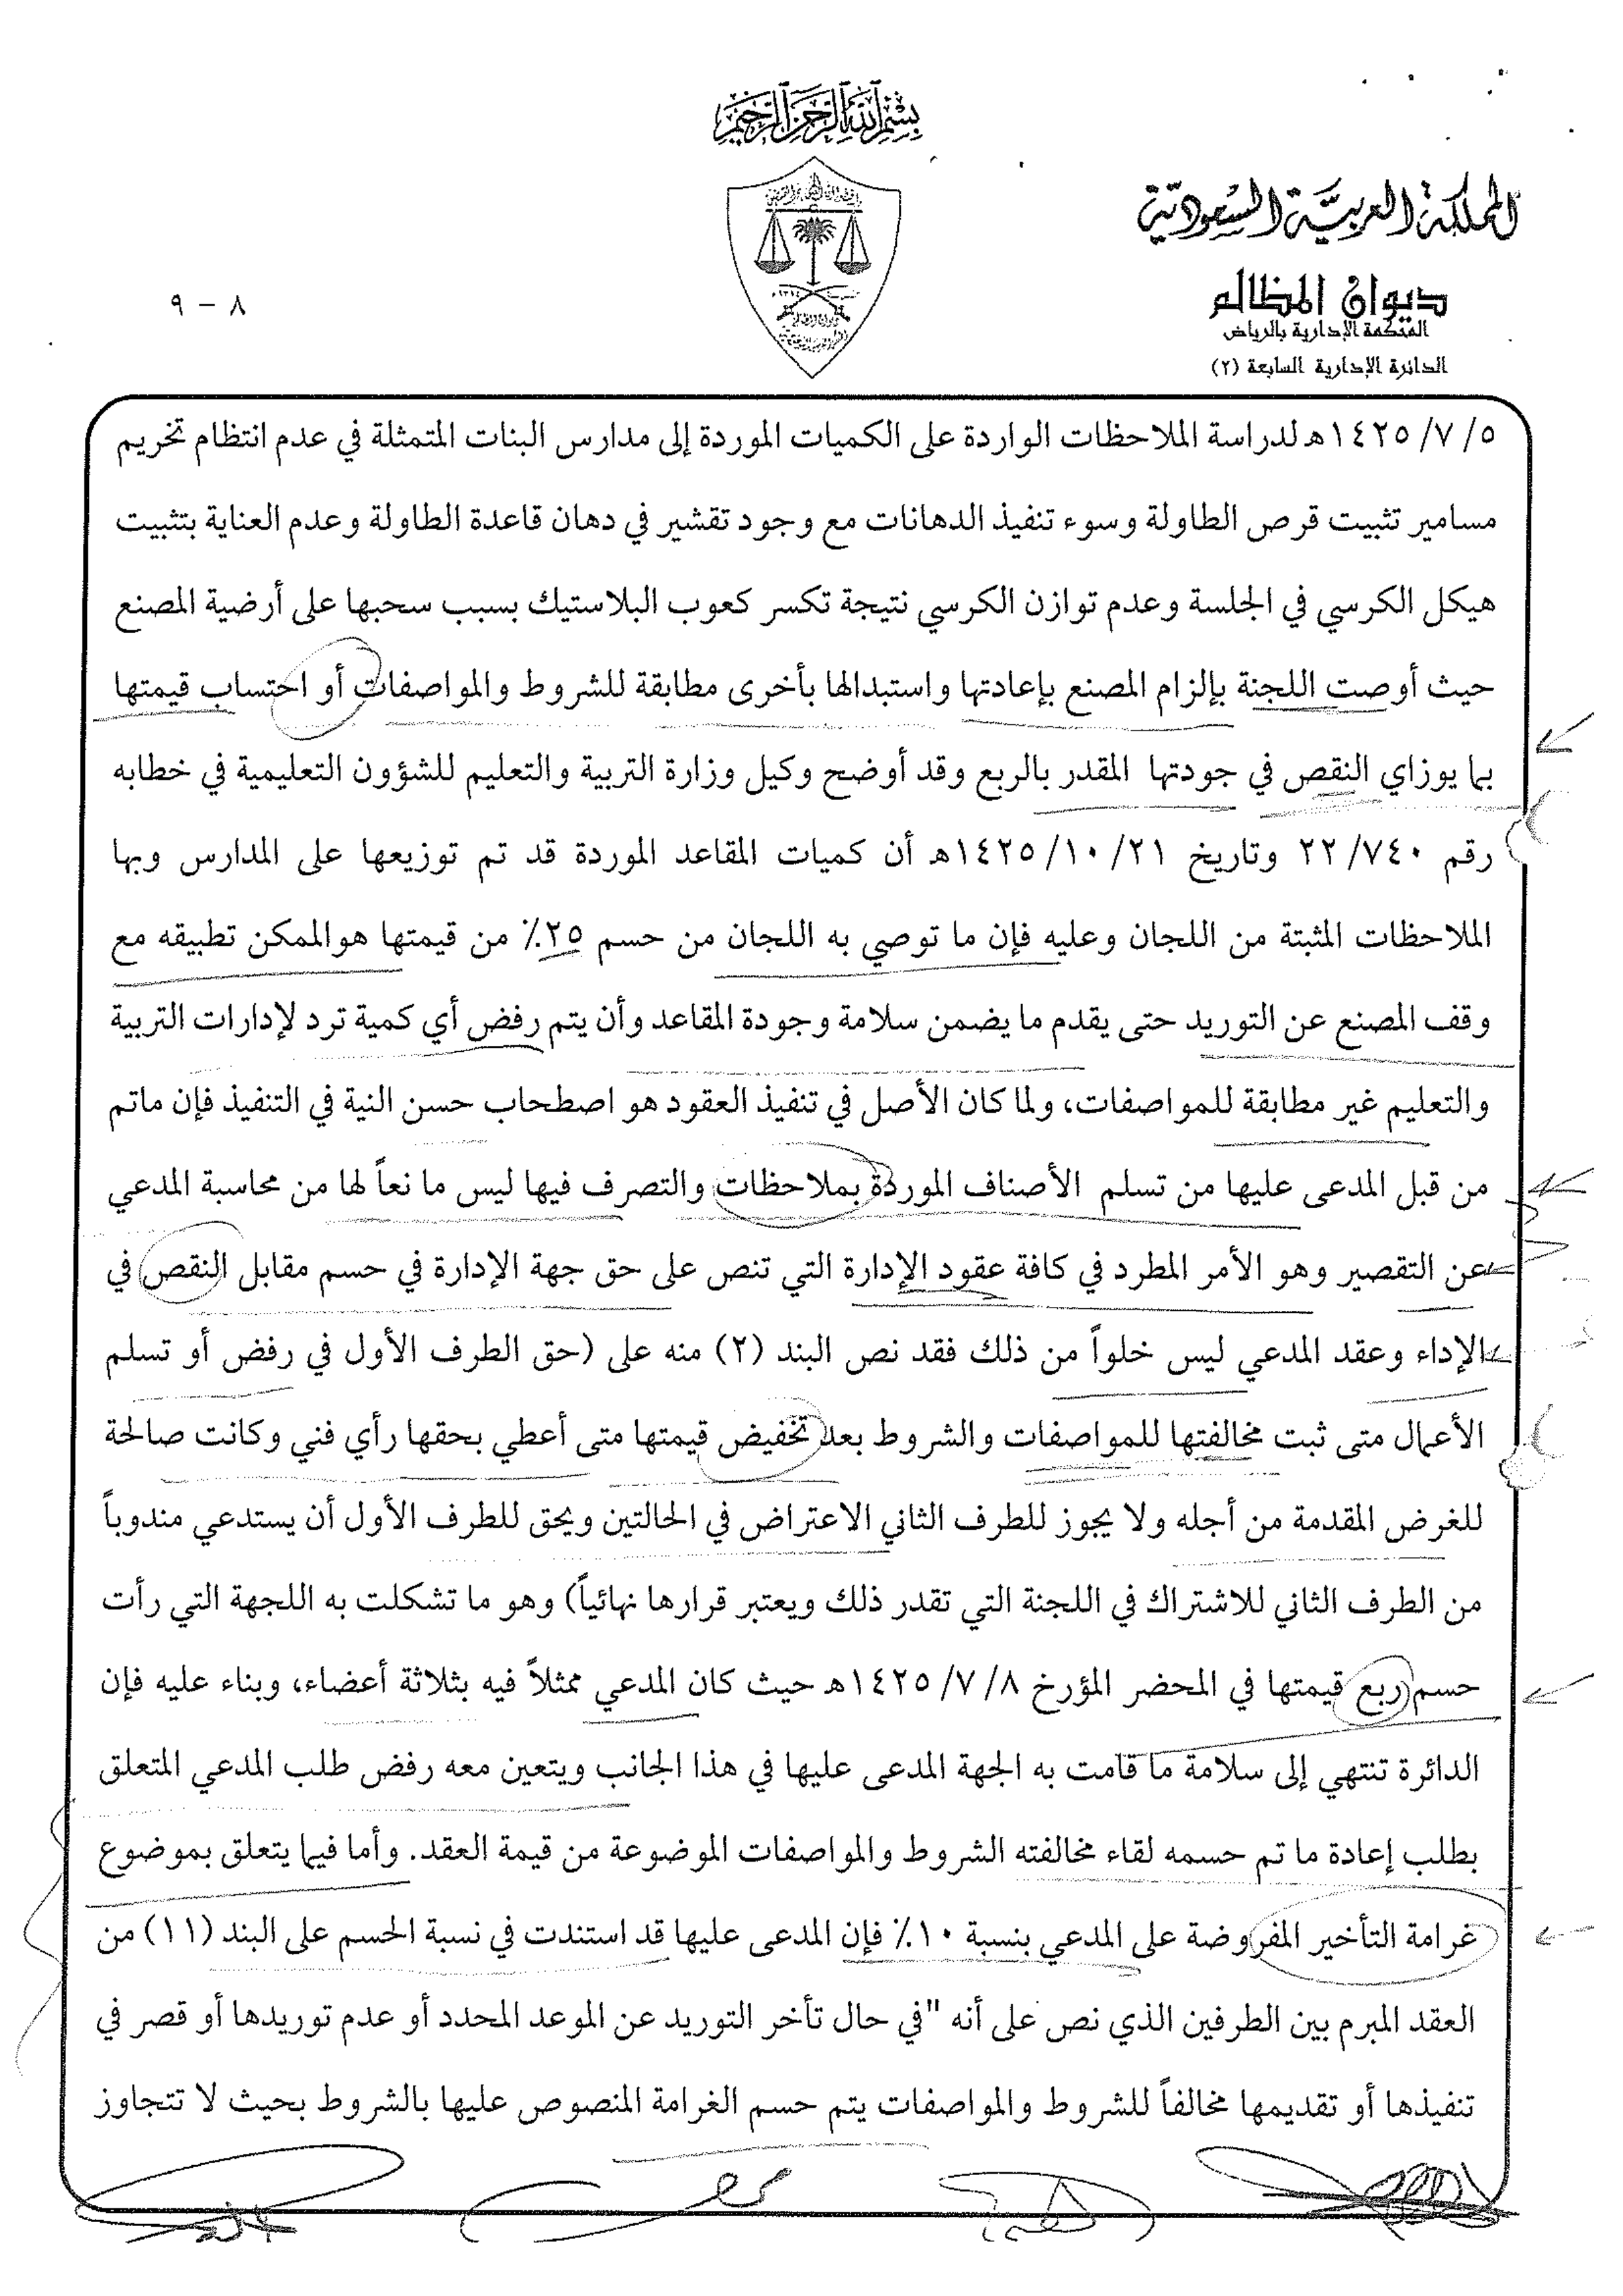 بسم الله الرحمن الرحيم
المملكة العربية السعودية
ديوان المظالم
المحكمة الإدارية بالرياض
الدائرة الإدارية السابعة (٢)
٨ - ٩
٥ /٧ /١٤٢٥هـ لدراسة الملاحظات الواردة على الكميات الموردة إلى مدارس البنات المتمثلة في عدم انتظام تخريم
مسامير تثبيت قرص الطاولة وسوء تنفيذ الدهانات مع وجود تقشير في دهان قاعدة الطاولة وعدم العناية بتثبيت
هيكل الكرسي في الجلسة وعدم توازن الكرسي نتيجة تكسر كعوب البلاستيك بسبب سحبها على أرضية المصنع
حيث أوصت اللجنة بإلزام المصنع بإعادتها واستبدالها بأخرى مطابقة للشروط والمواصفات أو احتساب قيمتها
بما يوزاي النقص في جودتها المقدر بالربع وقد أوضح وكيل وزارة التربية والتعليم للشؤون التعليمية في خطابه
رقم ٢٢/٧٤٠ وتاريخ ١٤٢٥/١٠/٢١هـ أن كميات المقاعد الموردة قد تم توزيعها على المدارس وبها
الملاحظات المثبتة من اللجان وعليه فإن ما توصي به اللجان من حسم ٢٥٪ من قيمتها هوالممكن تطبيقه مع
وقف المصنع عن التوريد حتى يقدم ما يضمن سلامة وجودة المقاعد وأن يتم رفض أي كمية ترد لإدارات التربية
والتعليم غير مطابقة للمواصفات، ولما كان الأصل في تنفيذ العقود هو اصطحاب حسن النية في التنفيذ فإن ماتم
من قبل المدعى عليها من تسلم الأصناف الموردة بملاحظات والتصرف فيها ليس ما نعاً لها من محاسبة المدعي
عن التقصير وهو الأمر المطرد في كافة عقود الإدارة التي تنص على حق جهة الإدارة في حسم مقابل النقص في
الإداء وعقد المدعي ليس خلواً من ذلك فقد نص البند (٢) منه على (حق الطرف الأول في رفض أو تسلم
الأعمال متى ثبت مخالفتها للمواصفات والشروط بعد تخفيض قيمتها متى أعطي بحقها رأي فني وكانت صالحة
للغرض المقدمة من أجله ولا يجوز للطرف الثاني الاعتراض في الحالتين ويحق للطرف الأول أن يستدعي مندوباً
من الطرف الثاني للاشتراك في اللجنة التي تقدر ذلك ويعتبر قرارها نهائياً) وهو ما تشكلت به اللجهة التي رأت
حسم ربع قيمتها في المحضر المؤرخ ٨ /٧ /١٤٢٥هـ حيث كان المدعي ممثلاً فيه بثلاثة أعضاء، وبناء عليه فإن
الدائرة تنتهي إلى سلامة ما قامت به الجهة المدعى عليها في هذا الجانب ويتعين معه رفض طلب المدعي المتعلق
بطلب إعادة ما تم حسمه لقاء مخالفته الشروط والمواصفات الموضوعة من قيمة العقد. وأما فيما يتعلق بموضوع
غرامة التأخير المفروضة على المدعي بنسبة ١٠٪ فإن المدعى عليها قد استندت في نسبة الحسم على البند (١١) من
العقد المبرم بين الطرفين الذي نص على أنه "في حال تأخر التوريد عن الموعد المحدد أو عدم توريدها أو قصر في
تنفيذها أو تقديمها مخالفاً للشروط والمواصفات يتم حسم الغرامة المنصوص عليها بالشروط بحيث لا تتجاوز